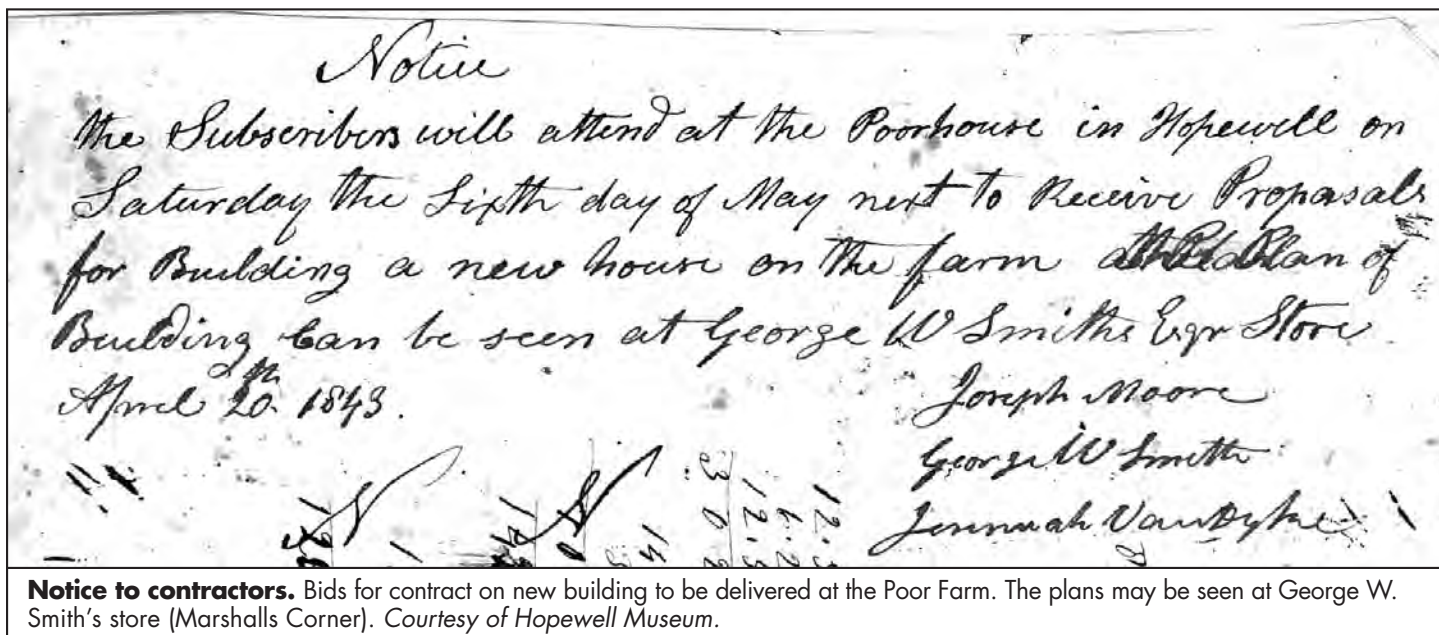 Notice
the Subscribers will attend at the Poorhouse in Hopewell on
Saturday the Sixth day of May next to Receive Proposals
for Building a new house on the farm Plan of
Building Can be seen at George W Smiths Esqr Store
April 20th 1843.
Joseph Moore
George W Smith
Jeremiah VanDyke
Notice to contractors. Bids for contract on new building to be delivered at the Poor Farm. The plans may be seen at George W.
Smith's store (Marshalls Corner). Courtesy of Hopewell Museum.